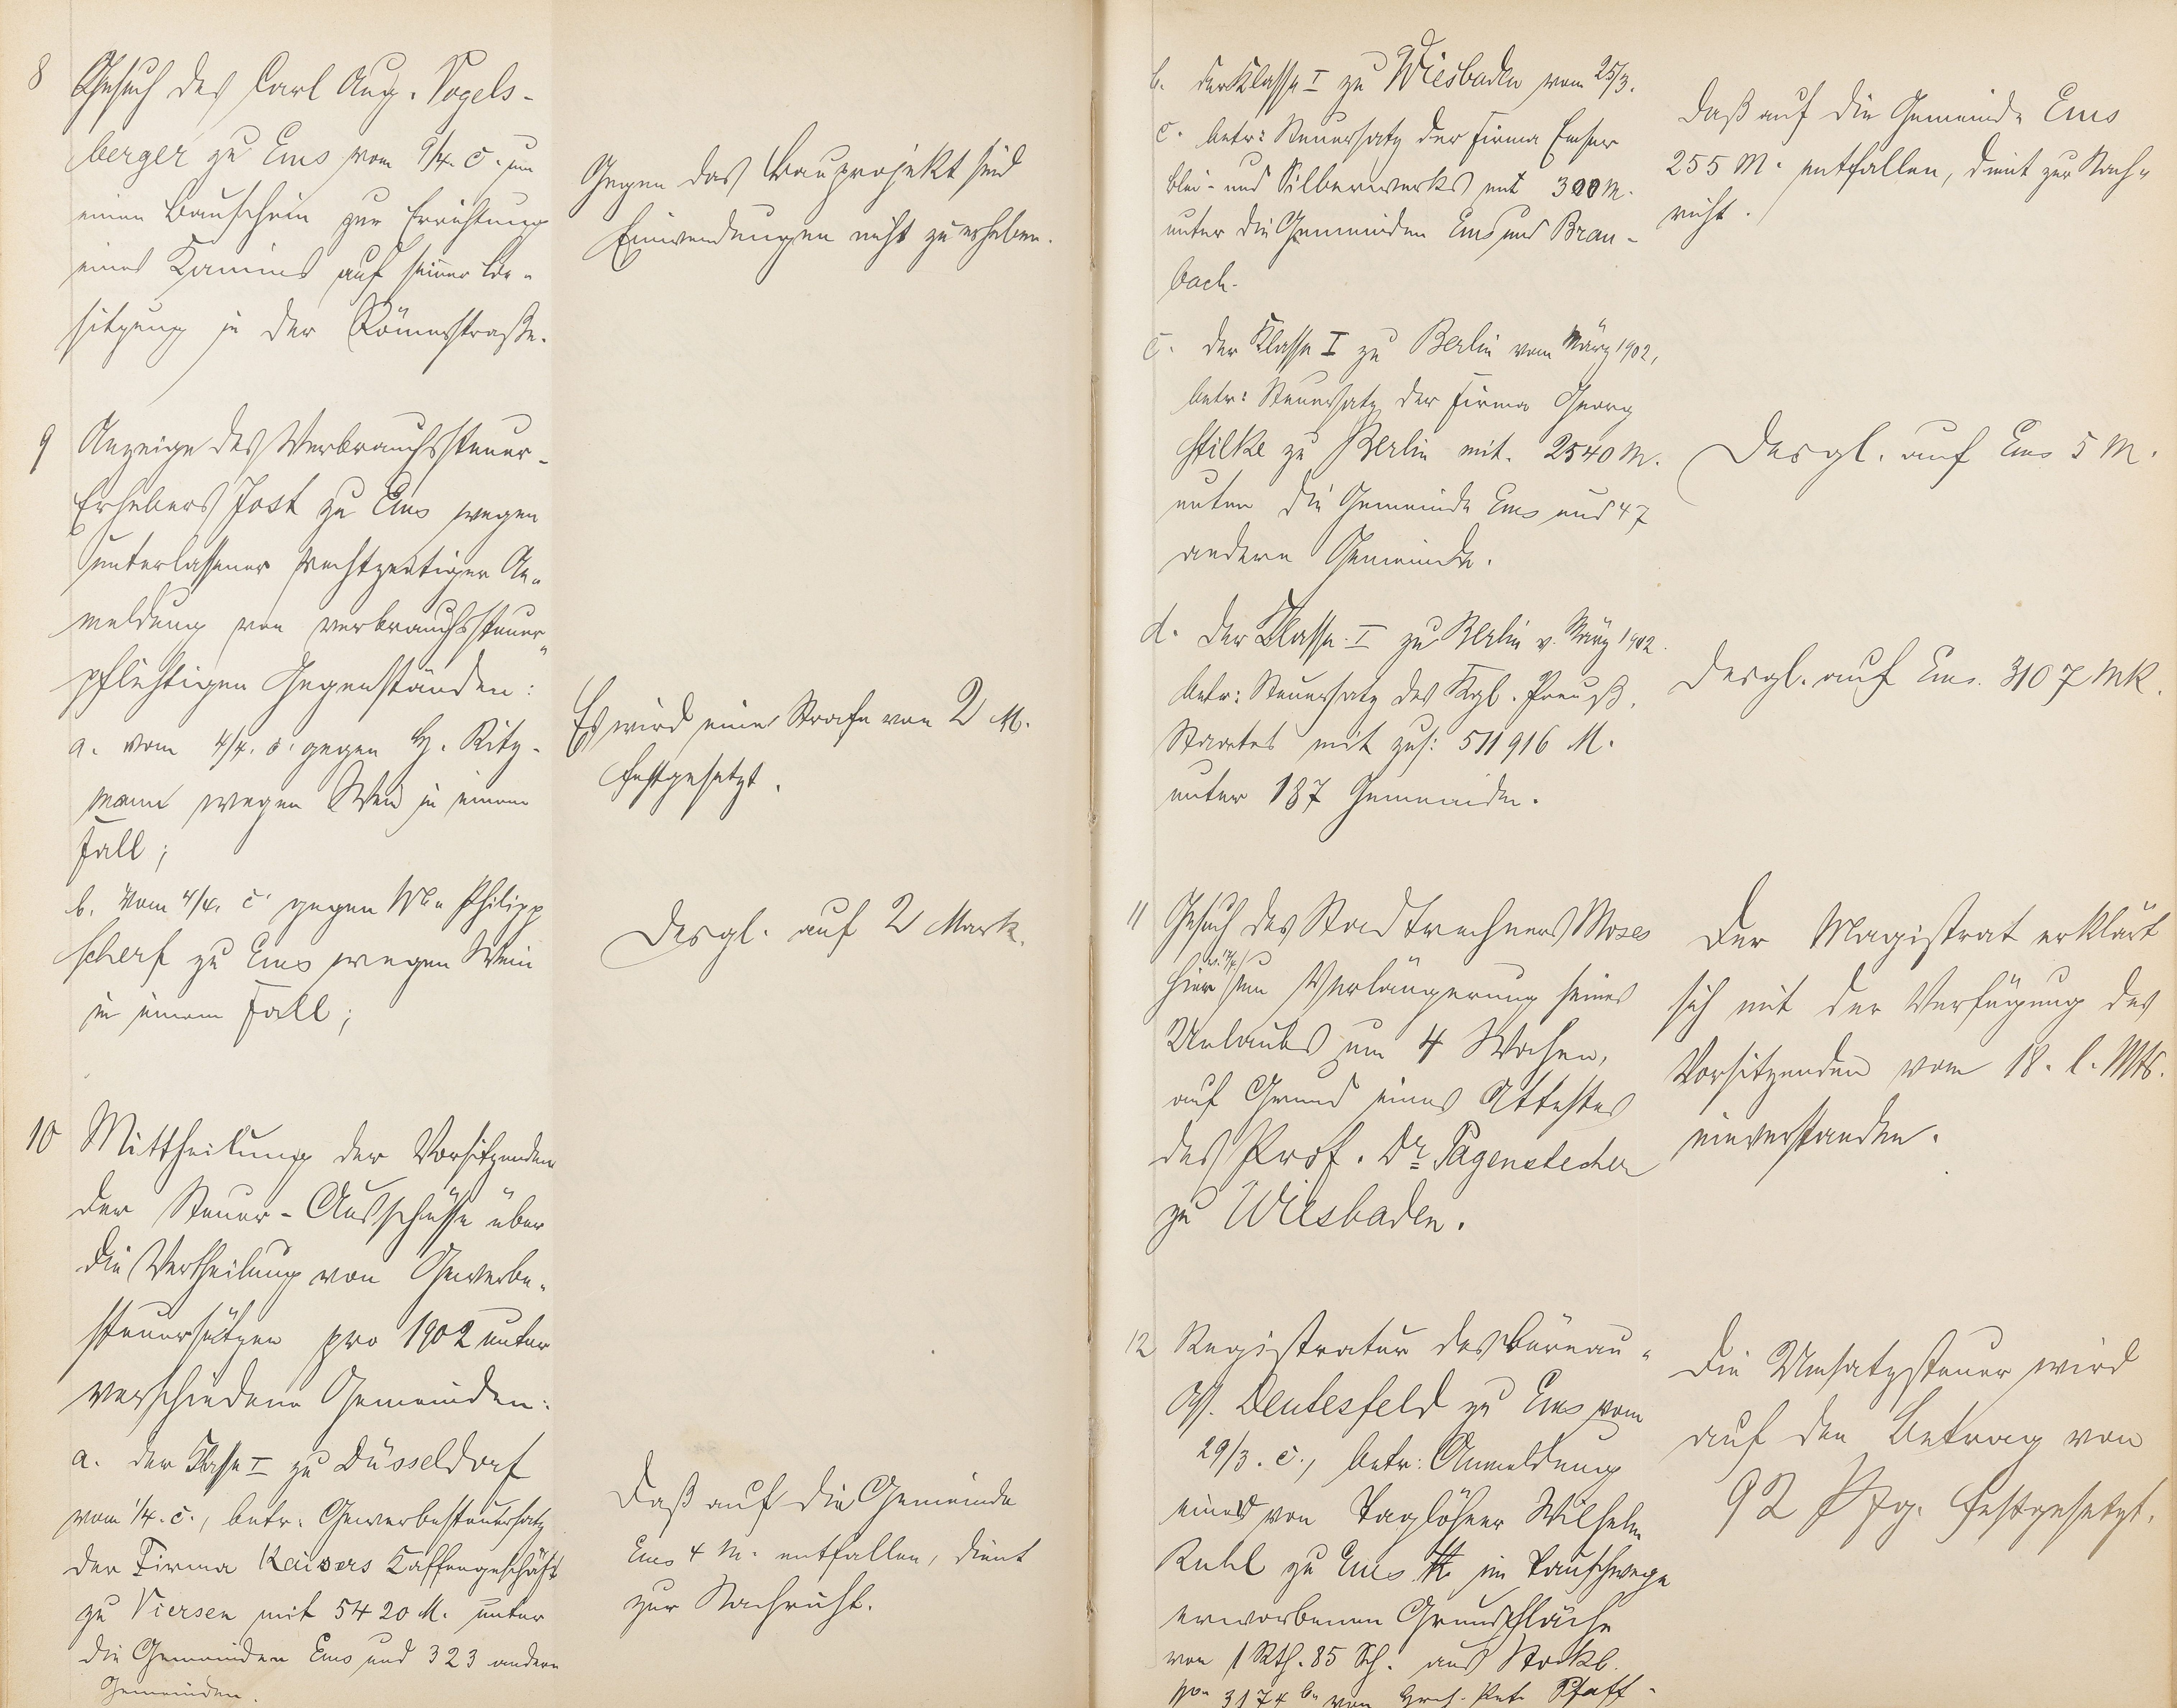 8 Gesuch des Carl Aug. Vogels-
berger zu Ems vom 9/4. c. um
einen Bauschein zur Errichtung
eines Kamins auf seiner Be-
sitzung in der Römerstraße.
Gegen das Bauprojekt sind
Einwendungen nicht zu erheben.
9 Anzeige des Verbrauchssteuer-
Erhebers Jost zu Ems wegen
unterlassener rechtzeitiger An-
meldung von verbrauchssteuer-
pflichtigen Gegenständen:
a. vom 4/4. c. gegen H. Ritz-
mann wegen Wein in einem
Fall;
Es wird eine Strafe von 2 M.
festgesetzt.
b. vom 4/4. c. gegen Philipp
Scherf zu Ems wegen Wein
in einem Fall;
Desgl. auf 2 Mark.
10 Mittheilung der Vorsitzenden
der Steuer-Ausschüsse über
die Vertheilung von Gewerbe-
steuersätzen pro 1902 unter
verschiedene Gemeinden:
a. der Klasse I zu Düsseldorf
vom 1/4. c., betr. Gewerbesteuersatz
der Firma Kaisers Kaffeegeschäft
zu Viersen mit 5420 M. unter
die Gemeinden Ems und 323 andere
Gemeinden.
Daß auf die Gemeinde
Ems 4 M. entfallen, dient
zur Nachricht.
b. der Klasse I zu Wiesbaden vom 25/3.
c. betr: Steuersatz der Firma Emser
Blei- und Silberwerks mit 300 M.
unter die Gemeinden Ems und Brau-
bach.
Daß auf die Gemeinde Ems
255 M. entfallen, dient zur Nach-
richt.
c. der Klasse I zu Berlin vom März 1902,
betr: Steuersatz der Firma Georg
Stilke zu Berlin mit 2540 M.
unter die Gemeinde Ems und 47
andere Gemeinde.
Desgl. auf Ems 5 M.
d. der Klasse I zu Berlin v. März 1902
betr: Steuersatz des Kgl. Preuß.
Staates mit zus: 511916 M.
unter 187 Gemeinden.
Desgl. auf Ems. 3107 Mk.
11 Gesuch des Stadtrechners Moses
hier um Verlängerung seines
Urlaubs um 4 Wochen,
auf Grund eines Attestes
des Prof. Dr Pagenstecher
zu Wiesbaden.
Der Magistrat erklärt
sich mit der Verfügung des
Vorsitzenden vom 18. l. Mts.
einverstanden.
12 Registratur des Büreau-
Ass. Deutesfeld zu Ems vom
29/3. c., betr: Anmeldung
einer von Taglöhner Wilhelm
Ruhl zu Ems im Tauschwege
erworbenen Grundfläche
von 1 Rth. 85 Sch. aus Stockb.
3174 von Pfaff-
Die Umsatzsteuer wird
auf den Betrag von
92 Pfg. festgesetzt.